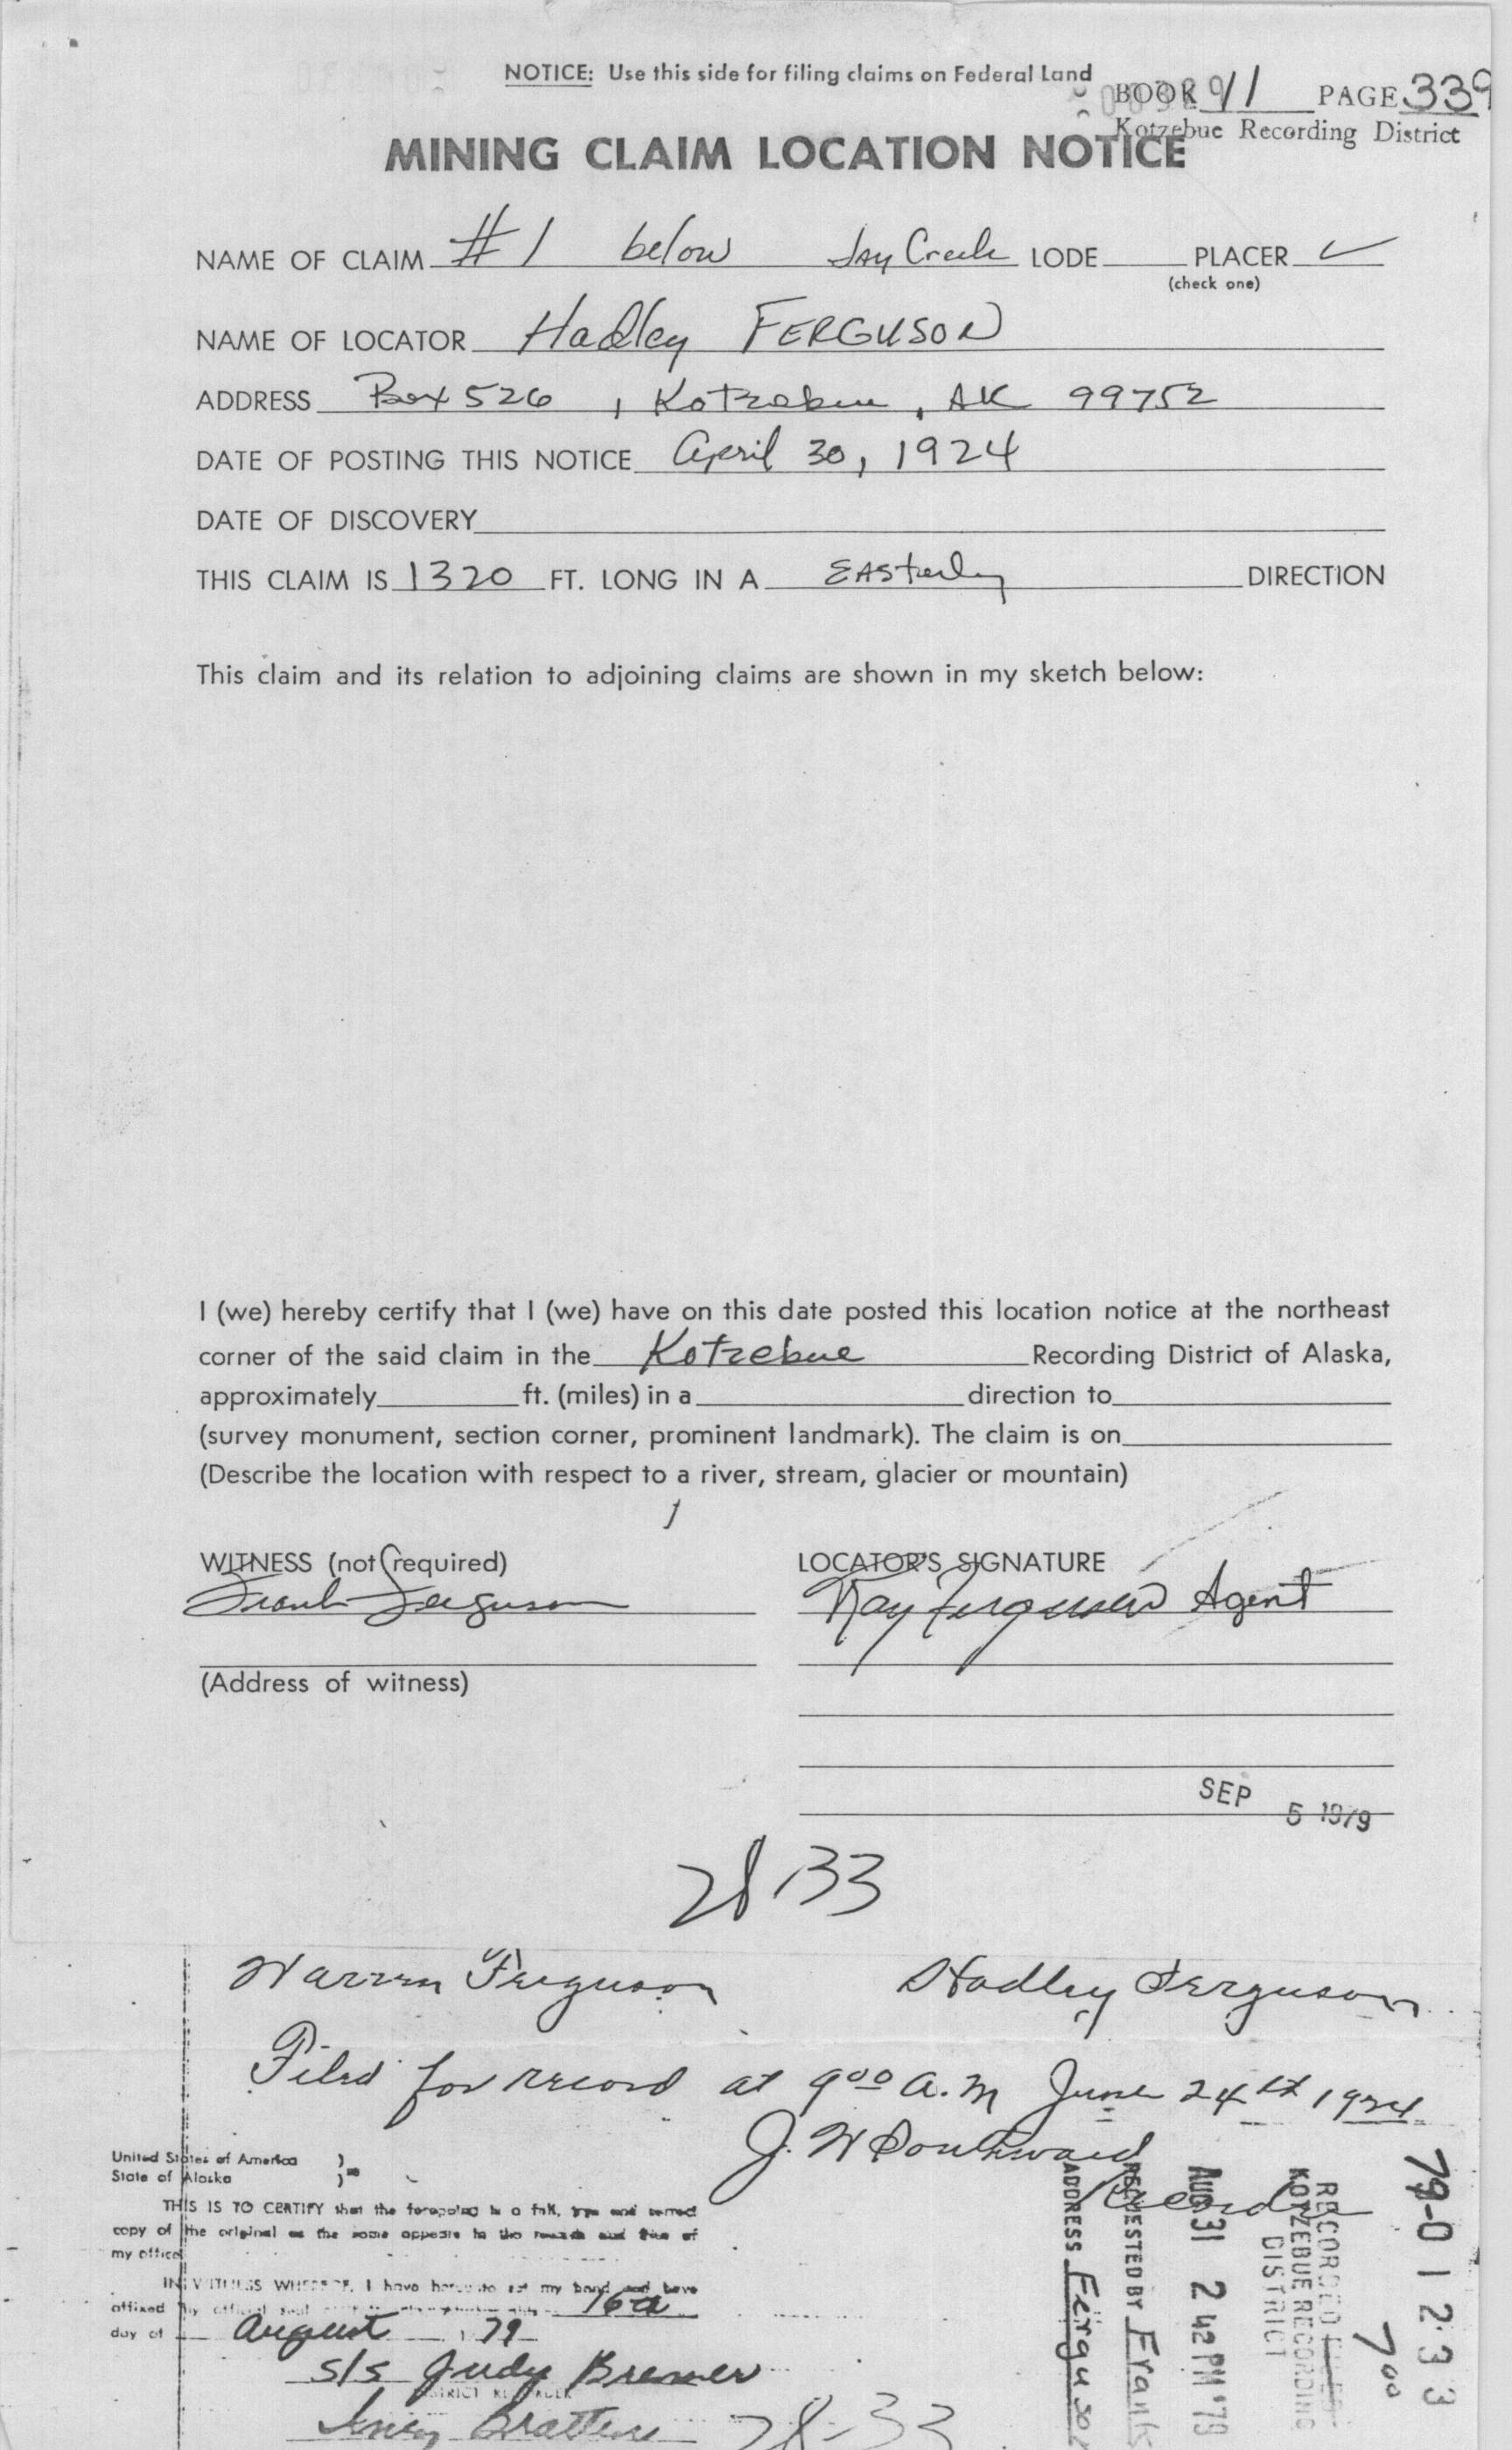 NOTICE: Use this side for filing claims on Federal Land
BOOK 91 PAGE 339
Kotzebue Recording District
MINING CLAIM LOCATION NOTICE
NAME OF CLAIM #1 below Jay Creek LODE PLACER ✓
(check one)
NAME OF LOCATOR Hadley FERGUSON
ADDRESS Box 526, Kotzebue, AK 99752
DATE OF POSTING THIS NOTICE April 30, 1924
DATE OF DISCOVERY
THIS CLAIM IS 1320 FT. LONG IN A EASterly DIRECTION
This claim and its relation to adjoining claims are shown in my sketch below:
I (we) hereby certify that I (we) have on this date posted this location notice at the northeast
corner of the said claim in the Kotzebue Recording District of Alaska,
approximately ft. (miles) in a direction to
(survey monument, section corner, prominent landmark). The claim is on
(Describe the location with respect to a river, stream, glacier or mountain)
WITNESS (not required) LOCATOR'S SIGNATURE
Frank Ferguson Ray Ferguson Agent
(Address of witness)
SEP 5 1979
28-33
Warren Ferguson Hadley Ferguson
Filed for record at 9 00 a.m June 24th 1924
J. W Southward
Recorder
United States of America )
State of Alaska )ss
THIS IS TO CERTIFY that the foregoing is a full, true and correct
copy of the original as the same appears in the records and files of
my office
IN WITNESS WHEREOF, I have hereunto set my hand and have
affixed my official seal 16th
day of August 79
s/s Judy Bremer
DISTRICT RECORDER
28-33
79-01233
7 00
RECORDED
KOTZEBUE RECORDING
DISTRICT
AUG 31 2 42 PM '79
REQUESTED BY Frank
ADDRESS Ferguson